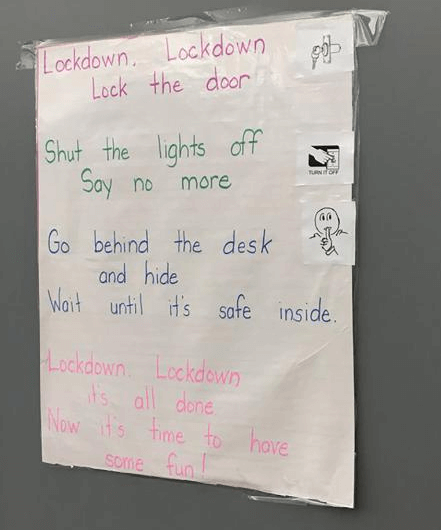 Lockdown. Lockdown
Lock the door
Shut the lights off
Say no more
Go behind the desk
and hide
Wait until it's safe inside.
Lockdown. Lockdown
it's all done
Now it's time to have
some fun!
TURN IT OFF